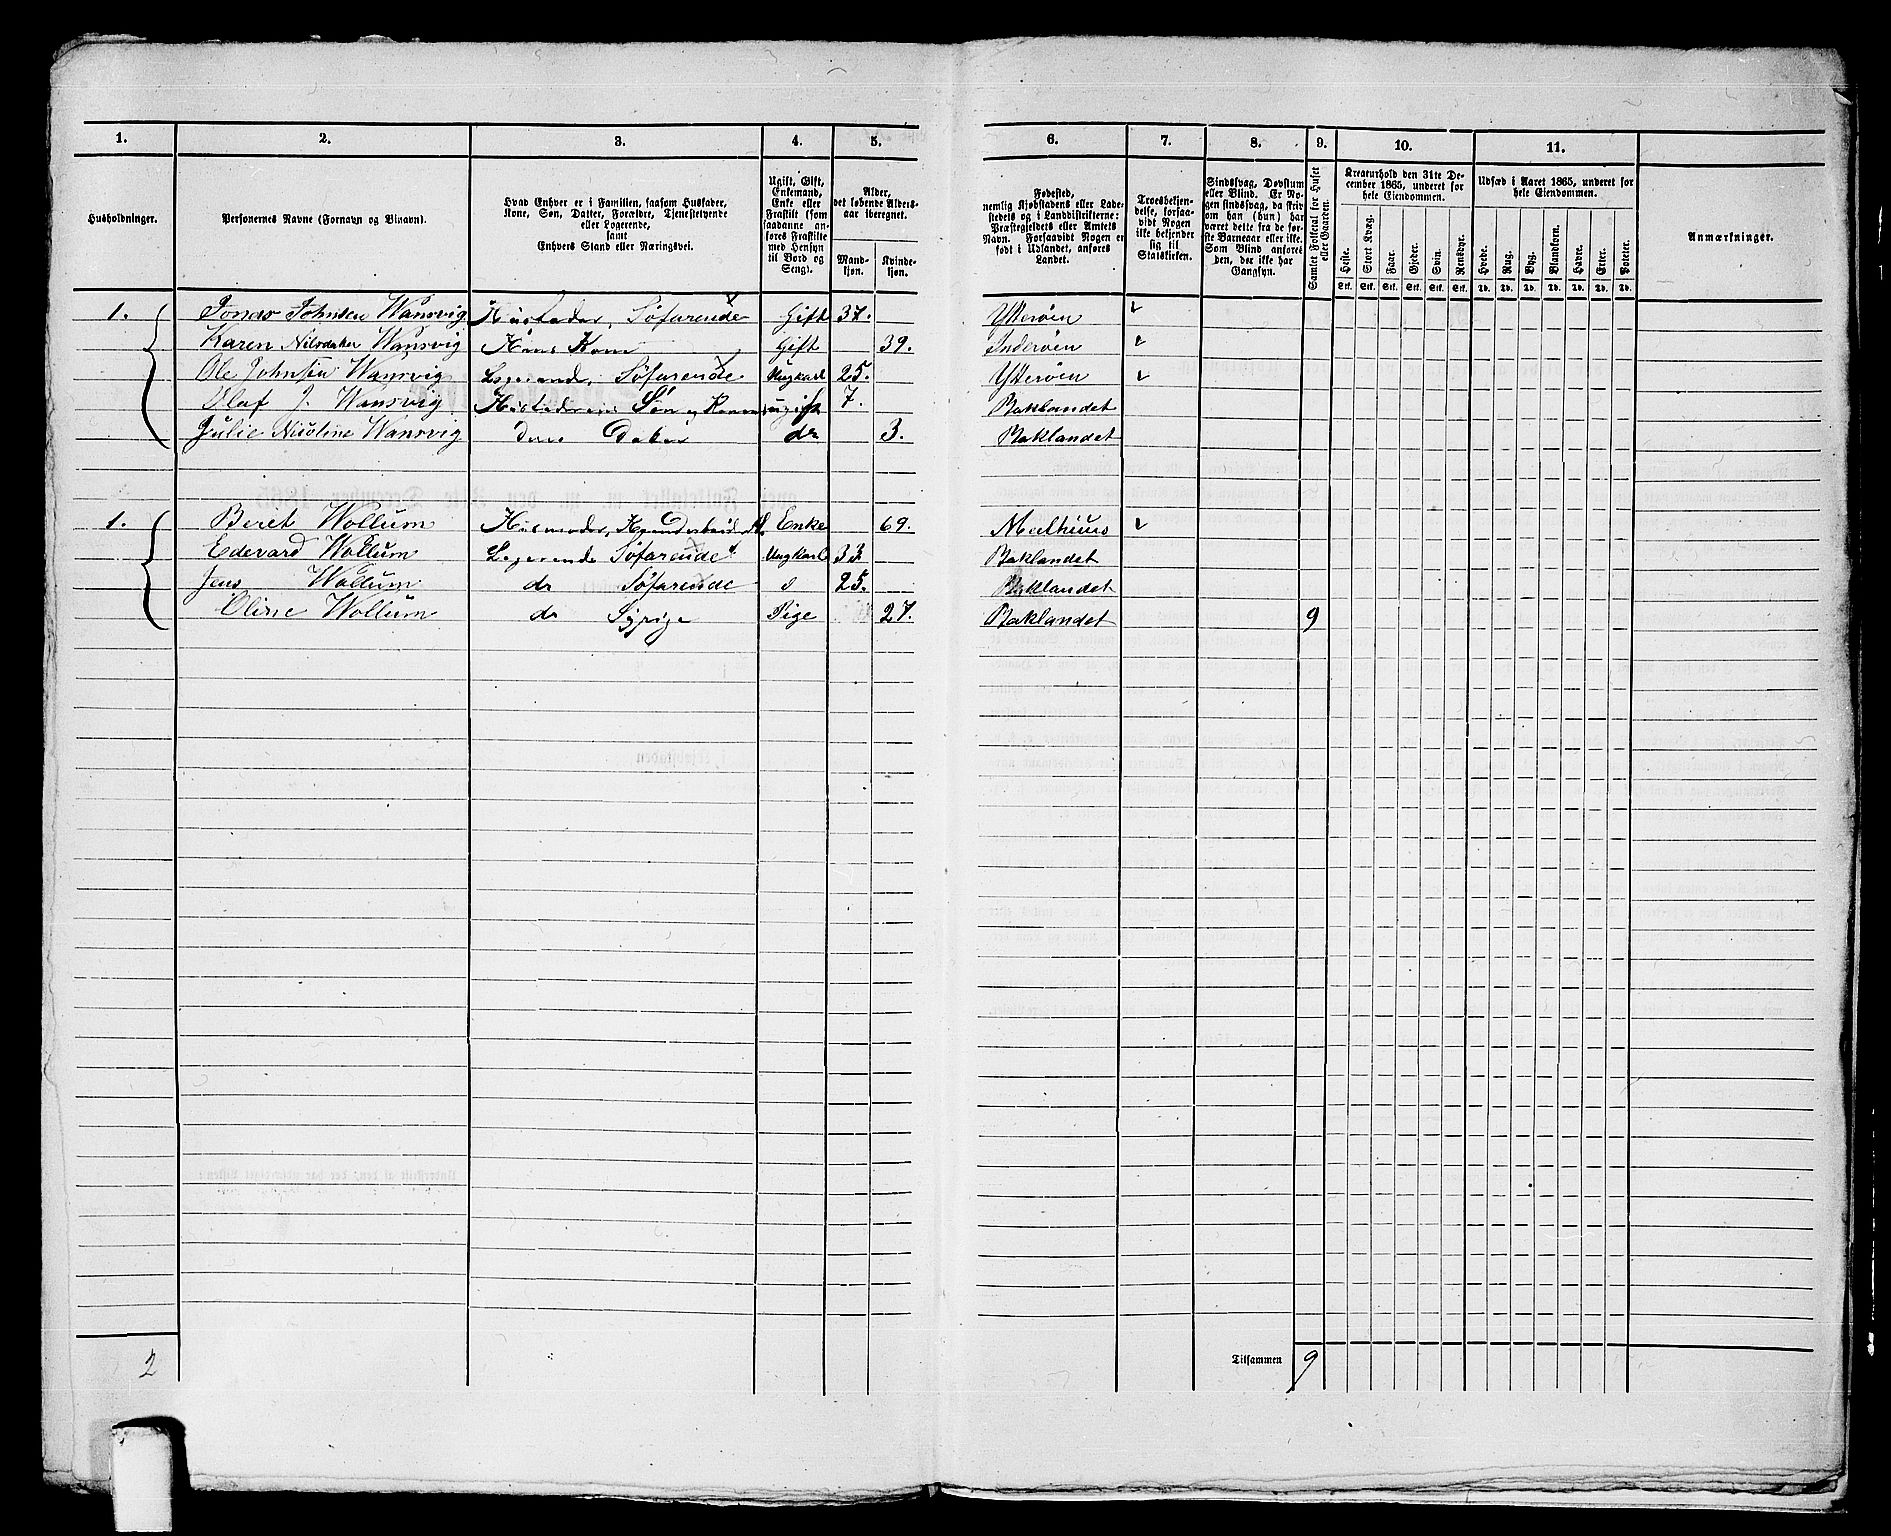 1. 2. 3. 4. 5. 6. 7. 8. 9. 10. 11.
Husholdninger.
Personernes Navne (Fornavn og Binavn).
Hvad Enhver er i Familien, saasom Husfader,
Kone, Søn, Datter, Forældre, Tjenestetyende
eller Logerende,
samt
Enhvers Stand eller Næringsvei.
Ugift, Gift,
Enkemand,
Enke eller
Fraskilt (som
saadanne an-
føres Fraskilte
med Hensyn
til Bord og
Seng).
Alder,
det løbende Alders-
aar iberegnet.
Mand-
kjøn.
Kvinde-
kjøn.
Fødested,
nemlig Kjøbstadens eller Lade-
stedets og i Landdistrikterne:
Præstegjeldets eller Amtets
Navn. Forsaavidt Nogen er
født i Udlandet, anføres
Landet.
Troesbekjen-
delse, forsaa-
vidt Nogen
ikke bekjender
sig til
Statskirken.
Sindssvag, Døvstum
eller Blind. Er No-
gen sindssvag, da skriv
om han (hun) har
været dette fra de før-
ste Barneaar eller ikke.
Som Blind anføres
den, der ikke har
Gangsyn.
Samlet Folketal for Huset
eller Gaarden.
Kreaturhold den 31te De-
cember 1865, underet for
hele Eiendommen.
Heste. Stort Kvæg. Faar. Gjeder. Svin. Rensdyr.
Stk. Stk. Stk. Stk. Stk. Stk.
Udsæd i Aaret 1865, underet for
hele Eiendommen.
Hvede. Rug. Byg. Blandkorn. Havre. Erter. Poteter.
Td. Td. Td. Td. Td. Td. Td.
Anmærkninger.
1. Jonas Johnsen Wansvig Husfader, Søfarende Gift 37. Ytterøen
Karen Nilsdater Wansvig Hans Kone Gift 39. Inderøen
Ole Johnsen Wansvig Logerende, Søfarende Ungkarl 25. Ytterøen
Olaf J. Wansvig Husfaderens Søn ugift 7. Baklandet
Julie Nicoline Wansvig Dater do 3. Baklandet
1. Beret Wollum Husmoder, Enke 69. Melhuus
Edevard Wollum Logerende Søfarende Ungkarl 33 Baklandet
Jens Wollum do Søfarende 25. Baklandet
Oline Wollum do Syrige Pige 27. Baklandet 9
2
Tilsammen 9